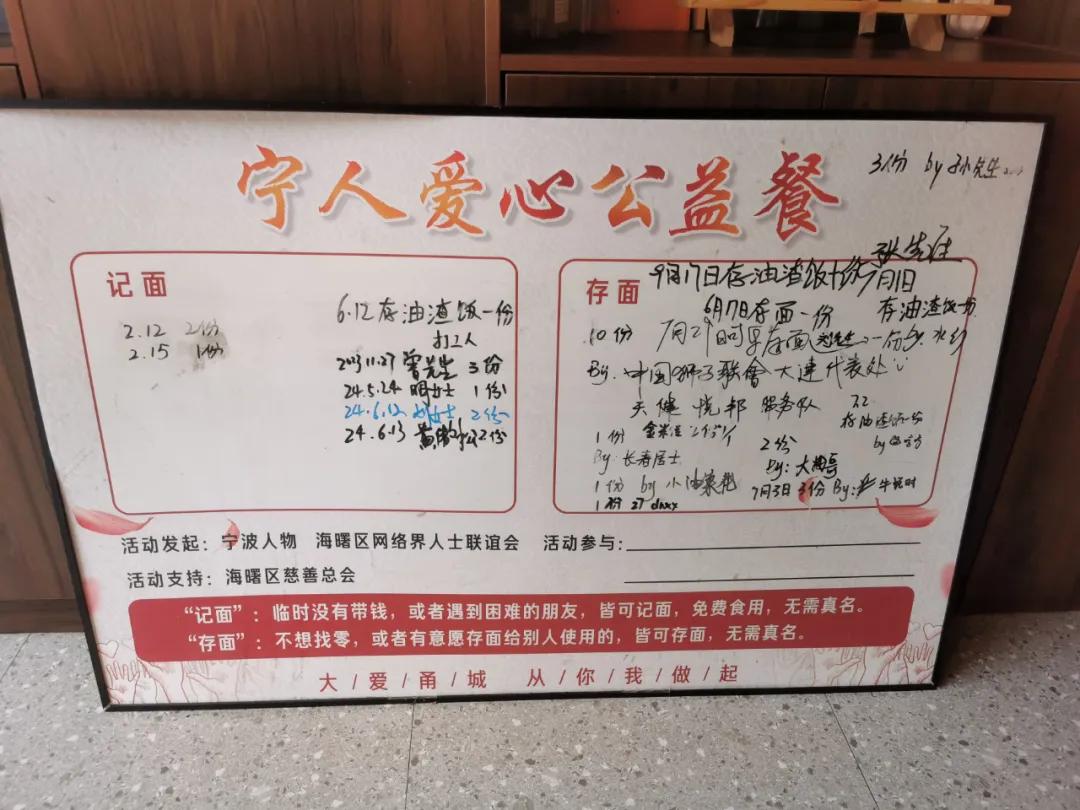 宁人爱心公益餐
3份 by 孙先生
记面
2.12 2份
2.15 1份
6.12存油渣饭一份
打工人
2023.11.27 曾先生 3份
24.5.24 明女士 1份
24.6.12 女士 2份
24.6.13 黄 2份
存面
张先生
9月17日存油渣饭十份
7月1日
存油渣饭一份
6月7日存面一份
10份 7月29日 存面 一份
By: 中国狮子联会大连代表处
天健悦邦 服务队
1份
By: 长寿居士
2份
By: 大
1份 by 小油菜
7月3日 3份 By:
1份 27 dnxx
活动发起：宁波人物 海曙区网络界人士联谊会 活动参与：
活动支持：海曙区慈善总会
“记面”：临时没有带钱，或者遇到困难的朋友，皆可记面，免费食用，无需真名。
“存面”：不想找零，或者有意愿存面给别人使用的，皆可存面，无需真名。
大/爱/甬/城 从/你/我/做/起